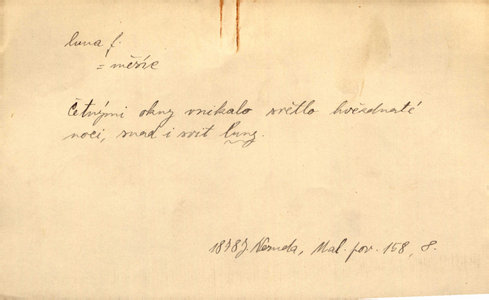 luna f.
= měsíc
Četnými okny vnikalo světlo hvězdnaté
noci, snad i svit luny.
1878 J. Neruda, Mal. pov. 158, 8.